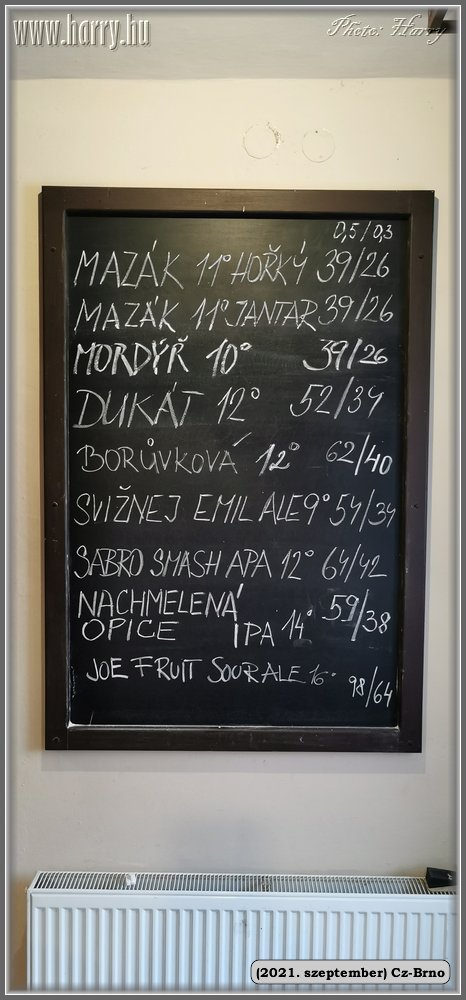 www.harry.hu
Photo: Harry
0,5/0,3
MAZÁK 11° HOŘKÝ 39/26
MAZÁK 11° JANTAR 39/26
MORDÝŘ 10° 39/26
DUKÁT 12° 52/34
BORŮVKOVÁ 12° 62/40
SVIŽNEJ EMIL ALE 9° 54/34
SABRO SMASH APA 12° 64/42
NACHMELENÁ
OPICE IPA 14° 59/38
JOE FRUIT SOUR ALE 16° 98/64
(2021. szeptember) Cz-Brno